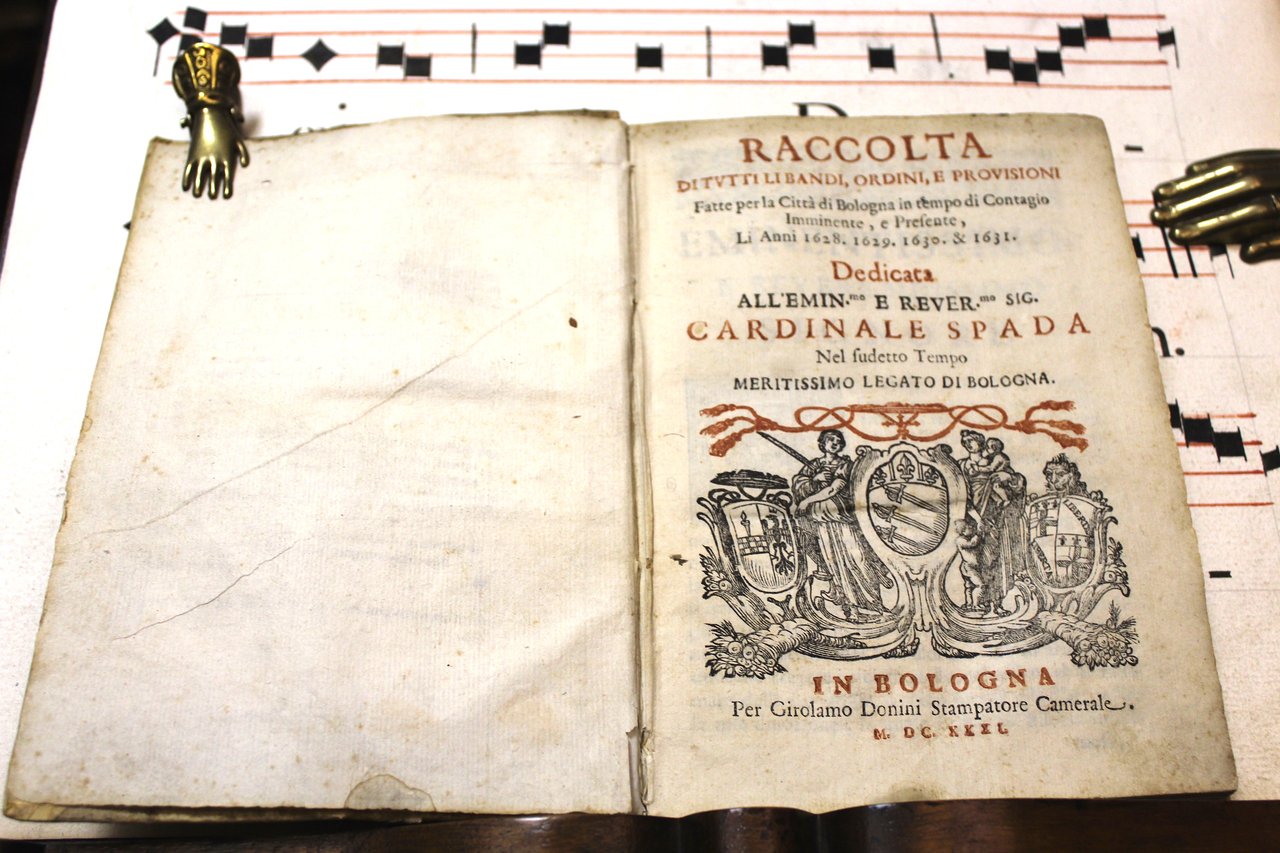 RACCOLTA
DI TVTTI LI BANDI, ORDINI, E PROVISIONI
Fatte per la Città di Bologna in tempo di Contagio
Imminente, e Preſente,
Li Anni 1628. 1629. 1630. & 1631.
Dedicata
ALL'EMIN.mo E REVER.mo SIG.
CARDINALE SPADA
Nel ſudetto Tempo
MERITISSIMO LEGATO DI BOLOGNA.
IN BOLOGNA
Per Girolamo Donini Stampatore Camerale.
M. DC. XXXI.